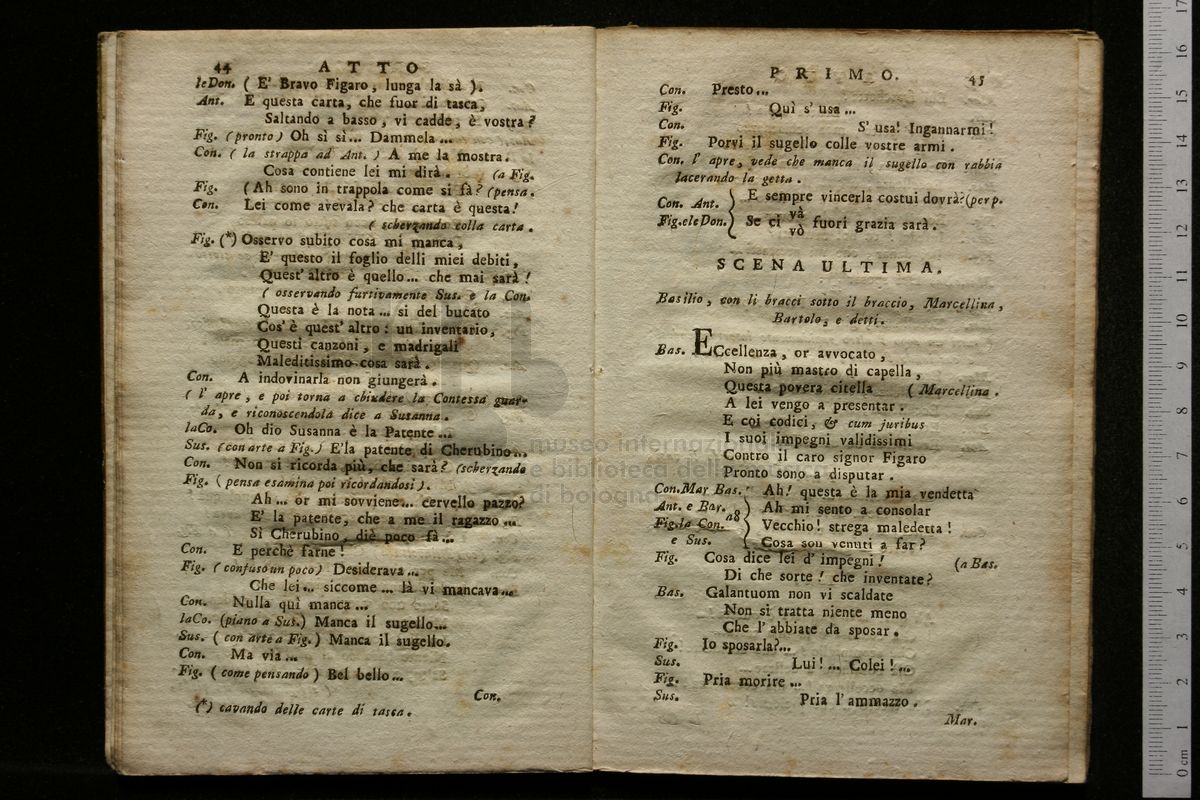 44 ATTO
le Don. ( E' Bravo Figaro, lunga la sà ).
Ant. E questa carta, che fuor di tasca,
Saltando a basso, vi cadde, è vostra?
Fig. (pronto) Oh sì sì... Dammela...
Con. ( la strappa ad Ant. ) A me la mostra.
Cosa contiene lei mi dirà. (a Fig.
Fig. (Ah sono in trappola come si fà? (pensa.
Con. Lei come avevala? che carta è questa!
( scherzando colla carta.
Fig. (*) Osservo subito cosa mi manca,
E' questo il foglio delli miei debiti,
Quest' altro è quello... che mai sarà!
( osservando furtivamente Sus. e la Con.
Questa è la nota... si del bucato
Cos' è quest' altro: un inventario,
Questi canzoni, e madrigali
Maleditissimo cosa sarà.
Con. A indovinarla non giungerà.
( l' apre, e poi torna a chiudere la Contessa guar-
da, e riconoscendola dice a Susanna.
la Co. Oh dio Susanna è la Patente...
Sus. (con arte a Fig.) E' la patente di Cherubino...
Con. Non si ricorda più, che sarà? (scherzando
Fig. ( pensa esamina poi ricordandosi ).
Ah... or mi sovviene... cervello pazzo?
E' la patente, che a me il ragazzo...
Sì Cherubino, diè poco fà...
Con. E perchè farne!
Fig. (confuso un poco) Desiderava...
Che lei... siccome... là vi mancava...
Con. Nulla quì manca...
la Co. (piano a Sus.) Manca il sugello...
Sus. ( con arte a Fig. ) Manca il sugello.
Con. Ma via...
Fig. ( come pensando ) Bel bello...
Con.
(*) cavando delle carte di tasca.
PRIMO. 45
Con. Presto...
Fig. Quì s' usa...
Con. S' usa! Ingannarmi!
Fig. Porvi il sugello colle vostre armi.
Con. l' apre, vede che manca il sugello con rabbia
lacerando la getta.
Con. Ant. E sempre vincerla costui dovrà? (per p.
Fig. e le Don. Se ci và vò fuori grazia sarà.
SCENA ULTIMA.
Basilio, con li bracci sotto il braccio, Marcellina,
Bartolo, e detti.
Bas. ECcellenza, or avvocato,
Non più mastro di capella,
Questa povera citella ( Marcellina.
A lei vengo a presentar.
E coi codici, & cum juribus
I suoi impegni validissimi
Contro il caro signor Figaro
Pronto sono a disputar.
Con. Mar Bas. Ah! questa è la mia vendetta
Ant. e Bar. a8 Ah mi sento a consolar
Fig. la Con. Vecchio! strega maledetta!
e Sus. Cosa son venuti a far?
Fig. Cosa dice lei d' impegni! (a Bas.
Di che sorte! che inventate?
Bas. Galantuom non vi scaldate
Non si tratta niente meno
Che l' abbiate da sposar.
Fig. Io sposarla?...
Sus. Lui!... Colei!...
Fig. Pria morire...
Sus. Pria l' ammazzo.
Mar.
museo internazionale
e biblioteca della
di bologna
0 cm 1 2 3 4 5 6 7 8 9 10 11 12 13 14 15 16 17